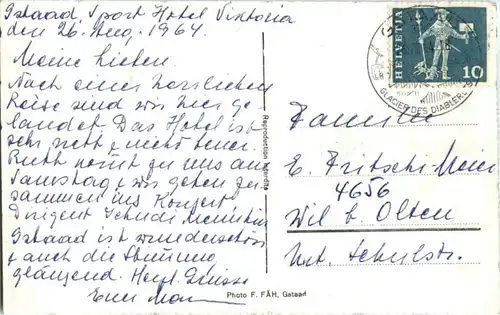 Gstaad, Sport Hotel Viktoria
den 26. Aug. 1964.
Meine Lieben.
Nach einer herrlichen
Reise sind wir hier ge
landet. Das Hotel ist
sehr nett & nicht teuer.
Ruth kommt zu uns am
Samstag & wir gehen zu
sammen ins Konzert
Dirigent Jehudi Menuhin
Gstaad ist wunderschön
& auch die Stimmung
glänzend. Herzl. Grüsse
Eure
Photo F. FÄH, Gstaad
Reproduction
HELVETIA
10
GLACIER DES DIABLERETS
Familie
E. Fritschi-Meier
4656
Wil b. Olten
Unt. Schulstr.